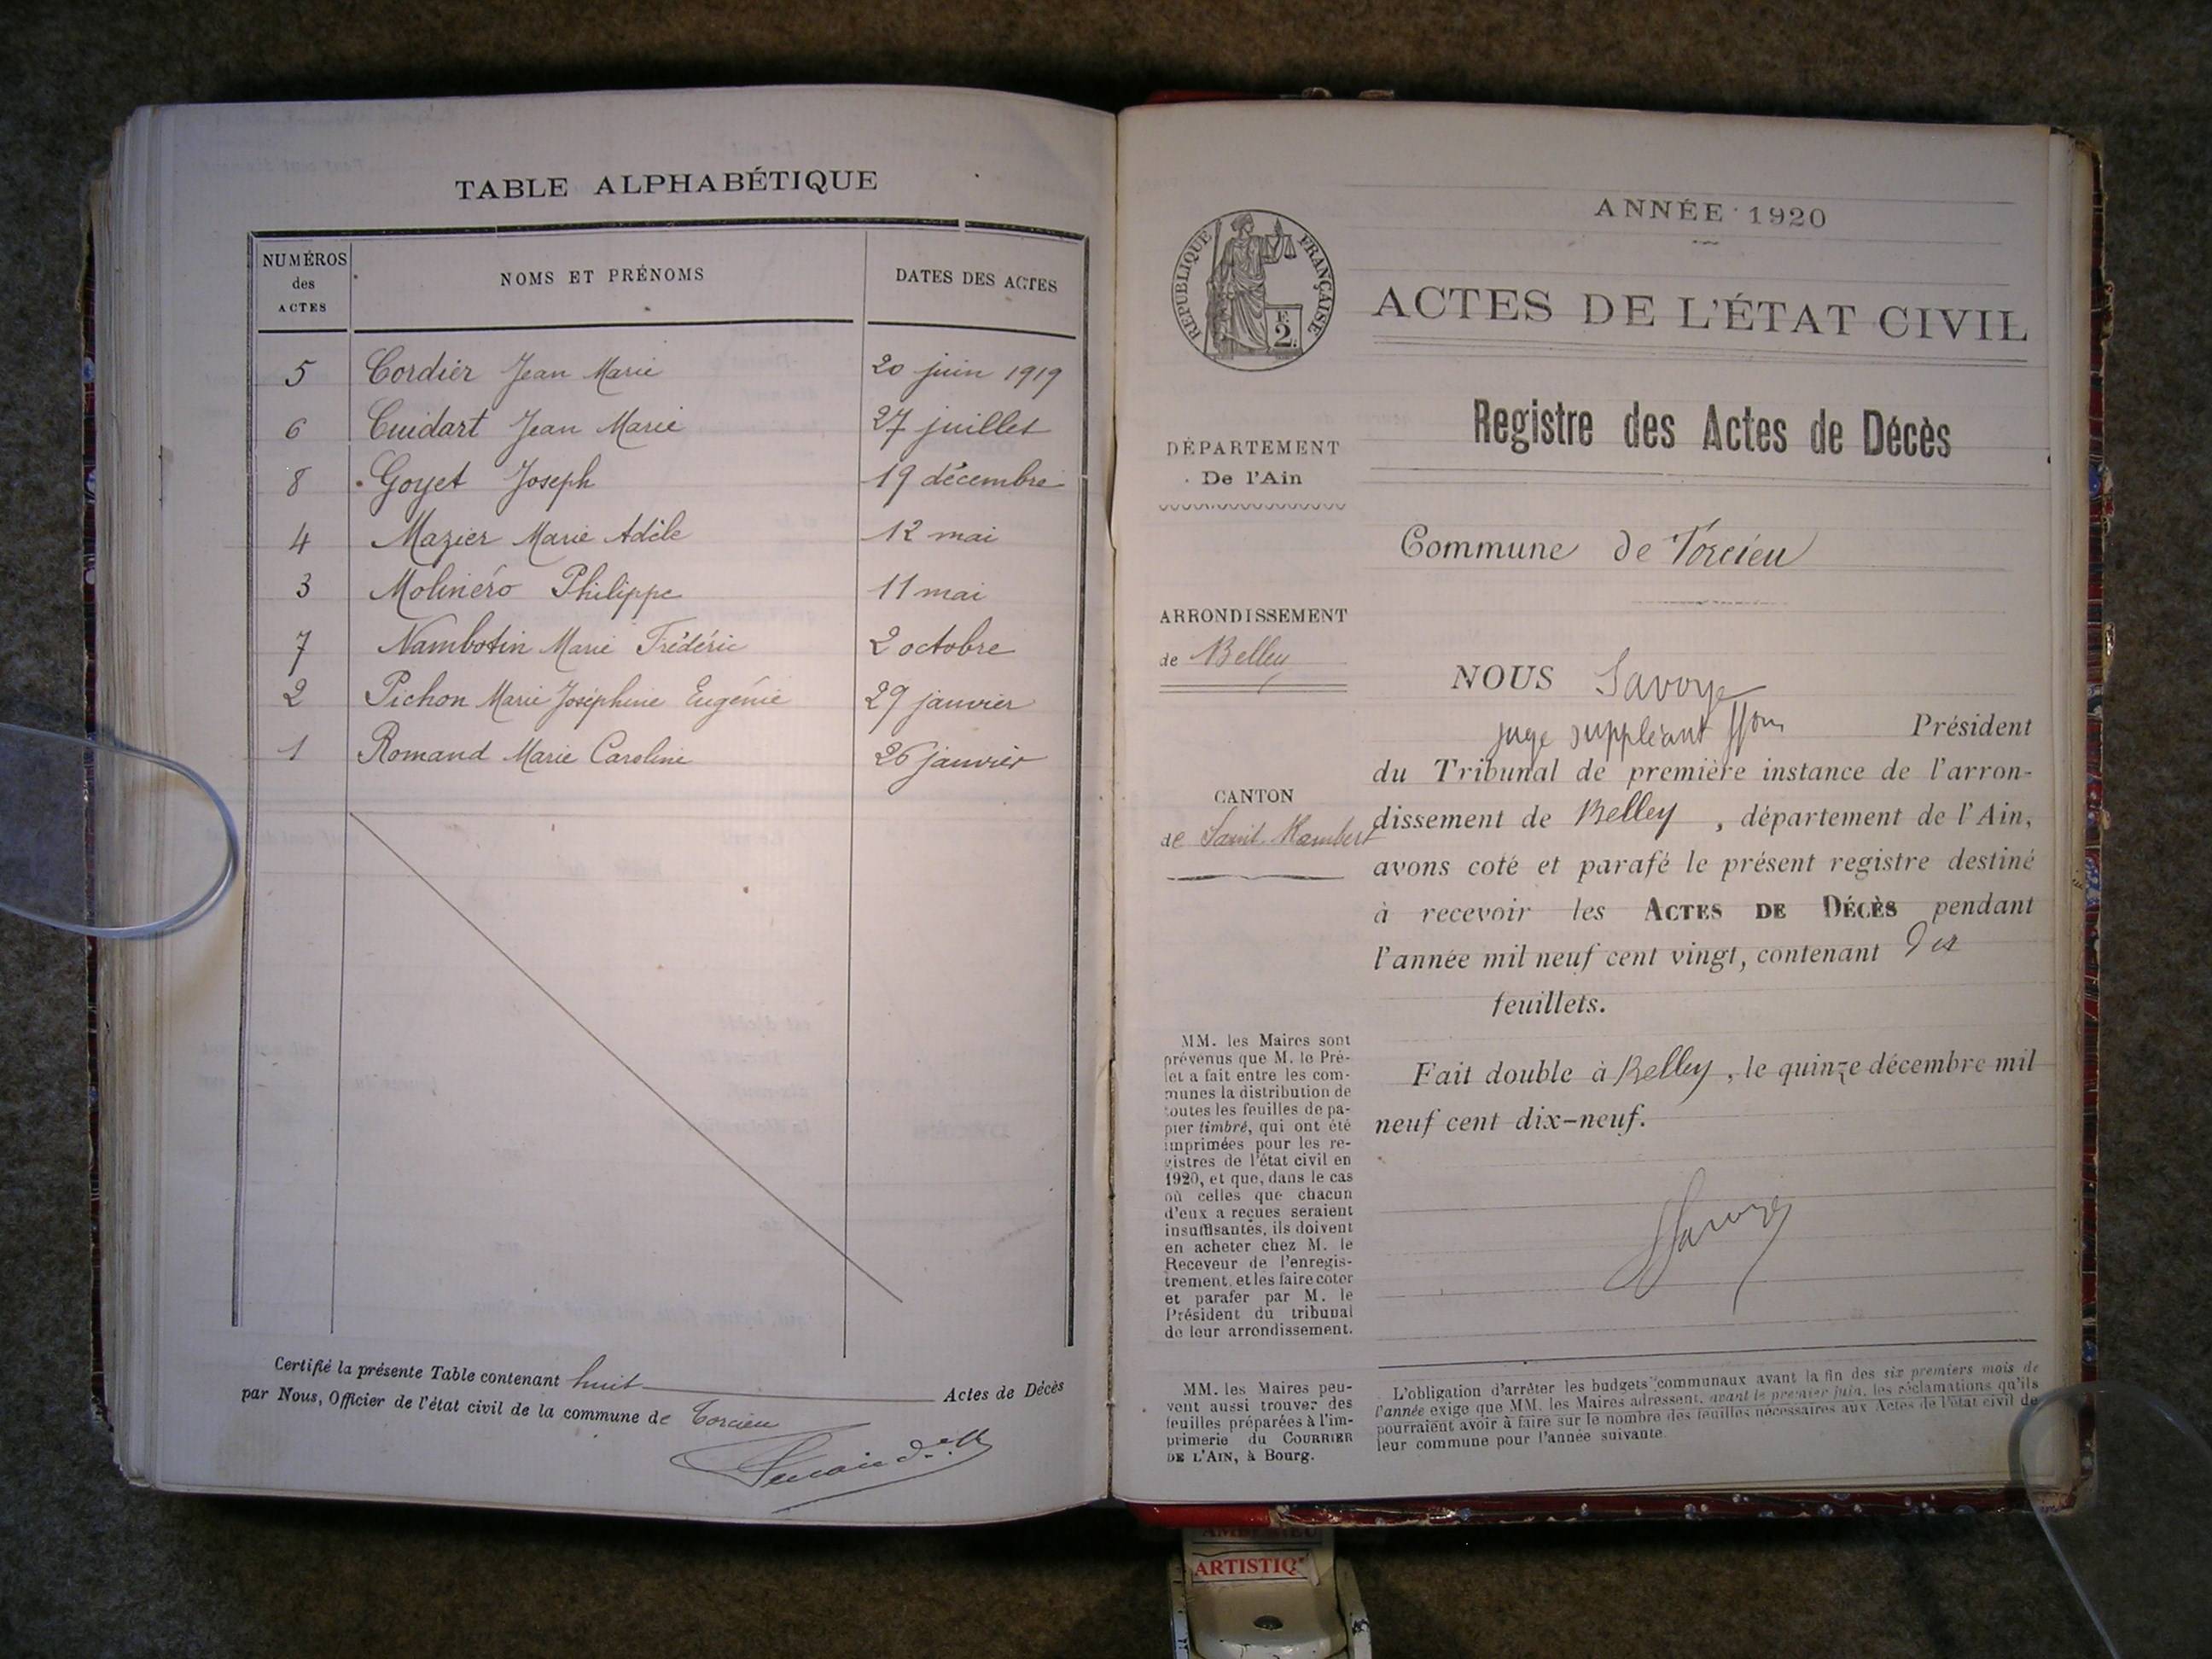 TABLE ALPHABÉTIQUE
NUMÉROS des ACTES NOMS ET PRÉNOMS DATES DES ACTES
5 Cordier Jean Marie 20 juin 1919
6 Cuidart Jean Marie 27 juillet
8 Goyet Joseph 19 décembre
4 Mazier Marie Adèle 12 mai
3 Molinéro Philippe 11 mai
7 Nambotin Marie Frédéric 2 octobre
2 Pichon Marie Joséphine Eugénie 29 janvier
1 Romand Marie Caroline 26 janvier
Certifié la présente Table contenant huit Actes de Décès
par Nous, Officier de l'état civil de la commune de Torcieu
ANNÉE 1920
RÉPUBLIQUE FRANÇAISE
F. 2.
ACTES DE L'ÉTAT CIVIL
Registre des Actes de Décès
DÉPARTEMENT
De l'Ain
Commune de Torcieu
ARRONDISSEMENT
de Belley
CANTON
de Saint Rambert
NOUS Savoye
juge suppléant Président
du Tribunal de première instance de l'arron-
dissement de Belley, département de l'Ain,
avons coté et parafé le présent registre destiné
à recevoir les ACTES DE DÉCÈS pendant
l'année mil neuf cent vingt, contenant Dix
feuillets.
Fait double à Belley, le quinze décembre mil
neuf cent dix-neuf.
Savoye
MM. les Maires sont
prévenus que M. le Pré-
fet a fait entre les com-
munes la distribution de
toutes les feuilles de pa-
pier timbré, qui ont été
imprimées pour les re-
gistres de l'état civil en
1920, et que, dans le cas
où celles que chacun
d'eux a reçues seraient
insuffisantes, ils doivent
en acheter chez M. le
Receveur de l'enregis-
trement, et les faire coter
et parafer par M. le
Président du tribunal
de leur arrondissement.
MM. les Maires peu-
vent aussi trouver des
feuilles préparées à l'im-
primerie du COURRIER
DE L'AIN, à Bourg.
L'obligation d'arrêter les budgets communaux avant la fin des six premiers mois de
l'année exige que MM. les Maires adressent, avant le premier juin, les réclamations qu'ils
pourraient avoir à faire sur le nombre des feuilles nécessaires aux Actes de l'état civil de
leur commune pour l'année suivante.
AMBÉRIEU
ARTISTIQ